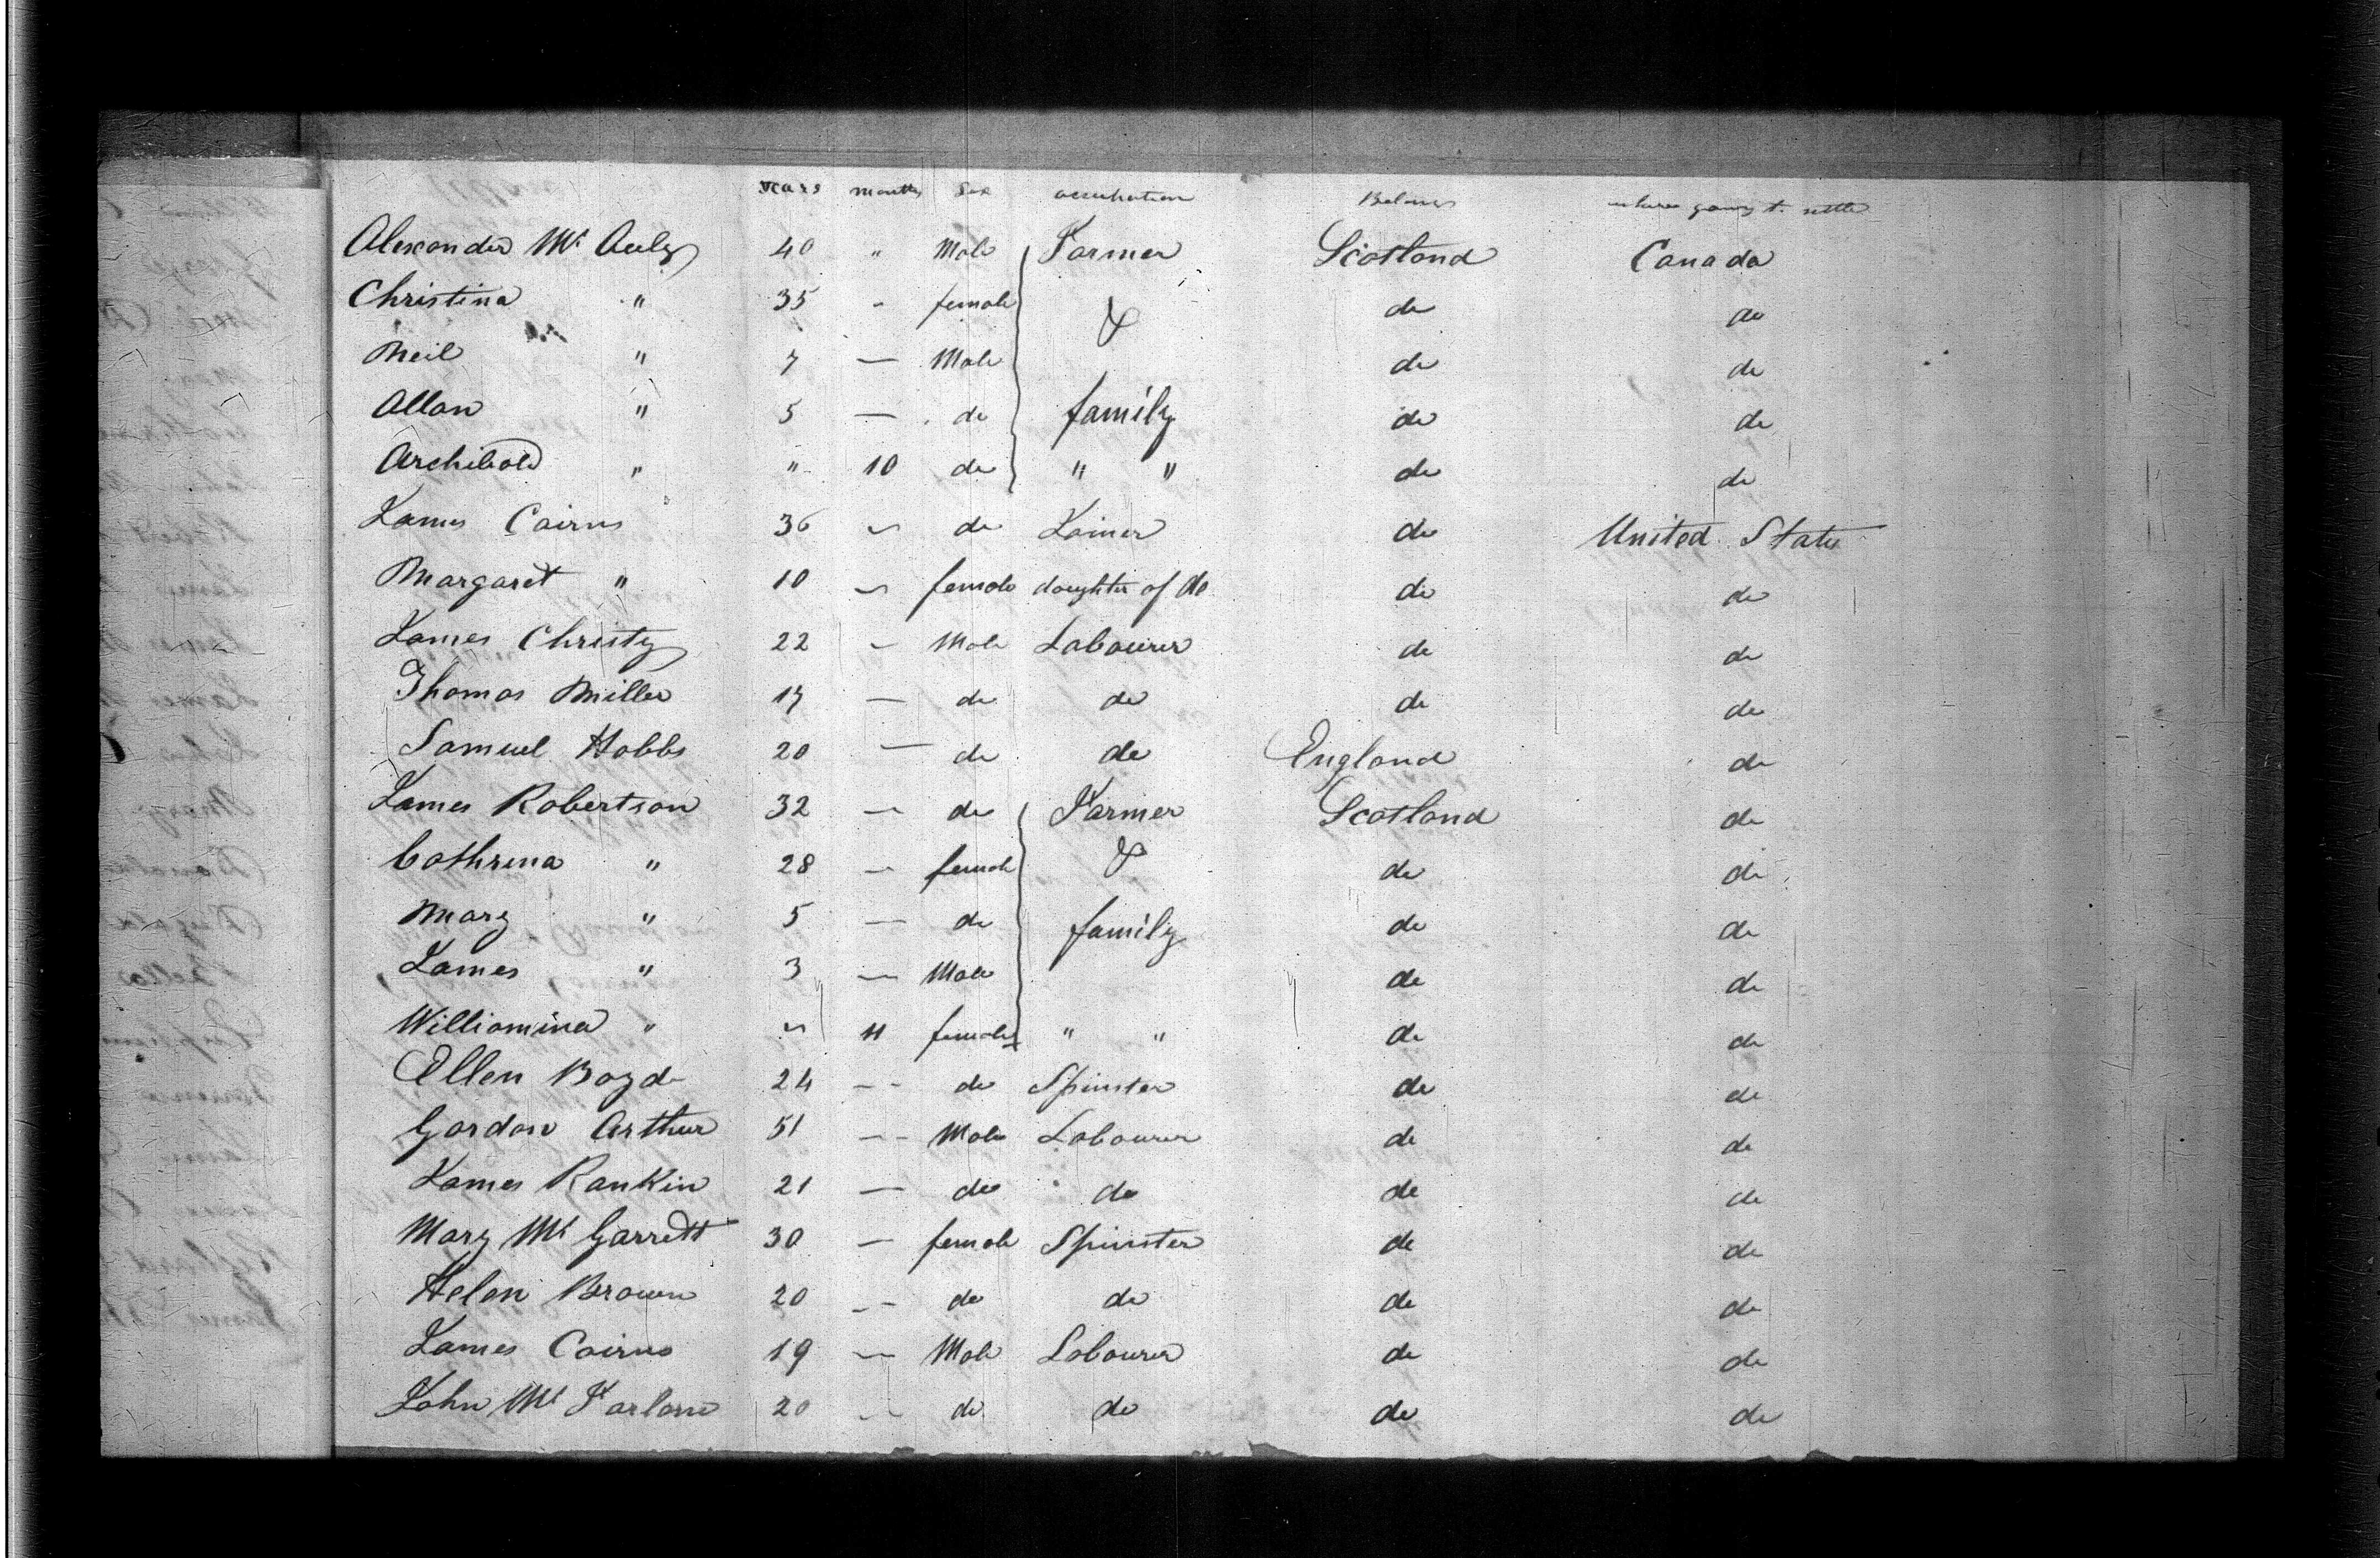 years months Sex occupation Belongs where going to settle
Alexander Mc Auly 40 " Male Farmer Scotland Canada
Christina " 35 " female & do do
Neil " 7 — Male do do
Allan " 5 — do family do do
Archibald " " 10 do " " do do
James Cairns 36 — do Joiner do United States
Margaret " 10 — female daughter of do do do
James Christy 22 — Male Labourer do do
Thomas Miller 17 — do do do do
Samuel Hobbs 20 — do do England do
James Robertson 32 — do Farmer Scotland do
Cathrina " 28 — female & do do
Mary " 5 — do family do do
James " 3 — Male do do
Williamina " " 11 female " " do do
Ellen Boyd 24 — do Spinster do do
Gordon Arthur 51 — Male Labourer do do
James Rankin 21 — do do do do
Mary Mc Garrett 30 — female Spinster do do
Helen Brown 20 — do do do do
James Cairns 19 — Male Labourer do do
John Mc Farlane 20 — do do do do